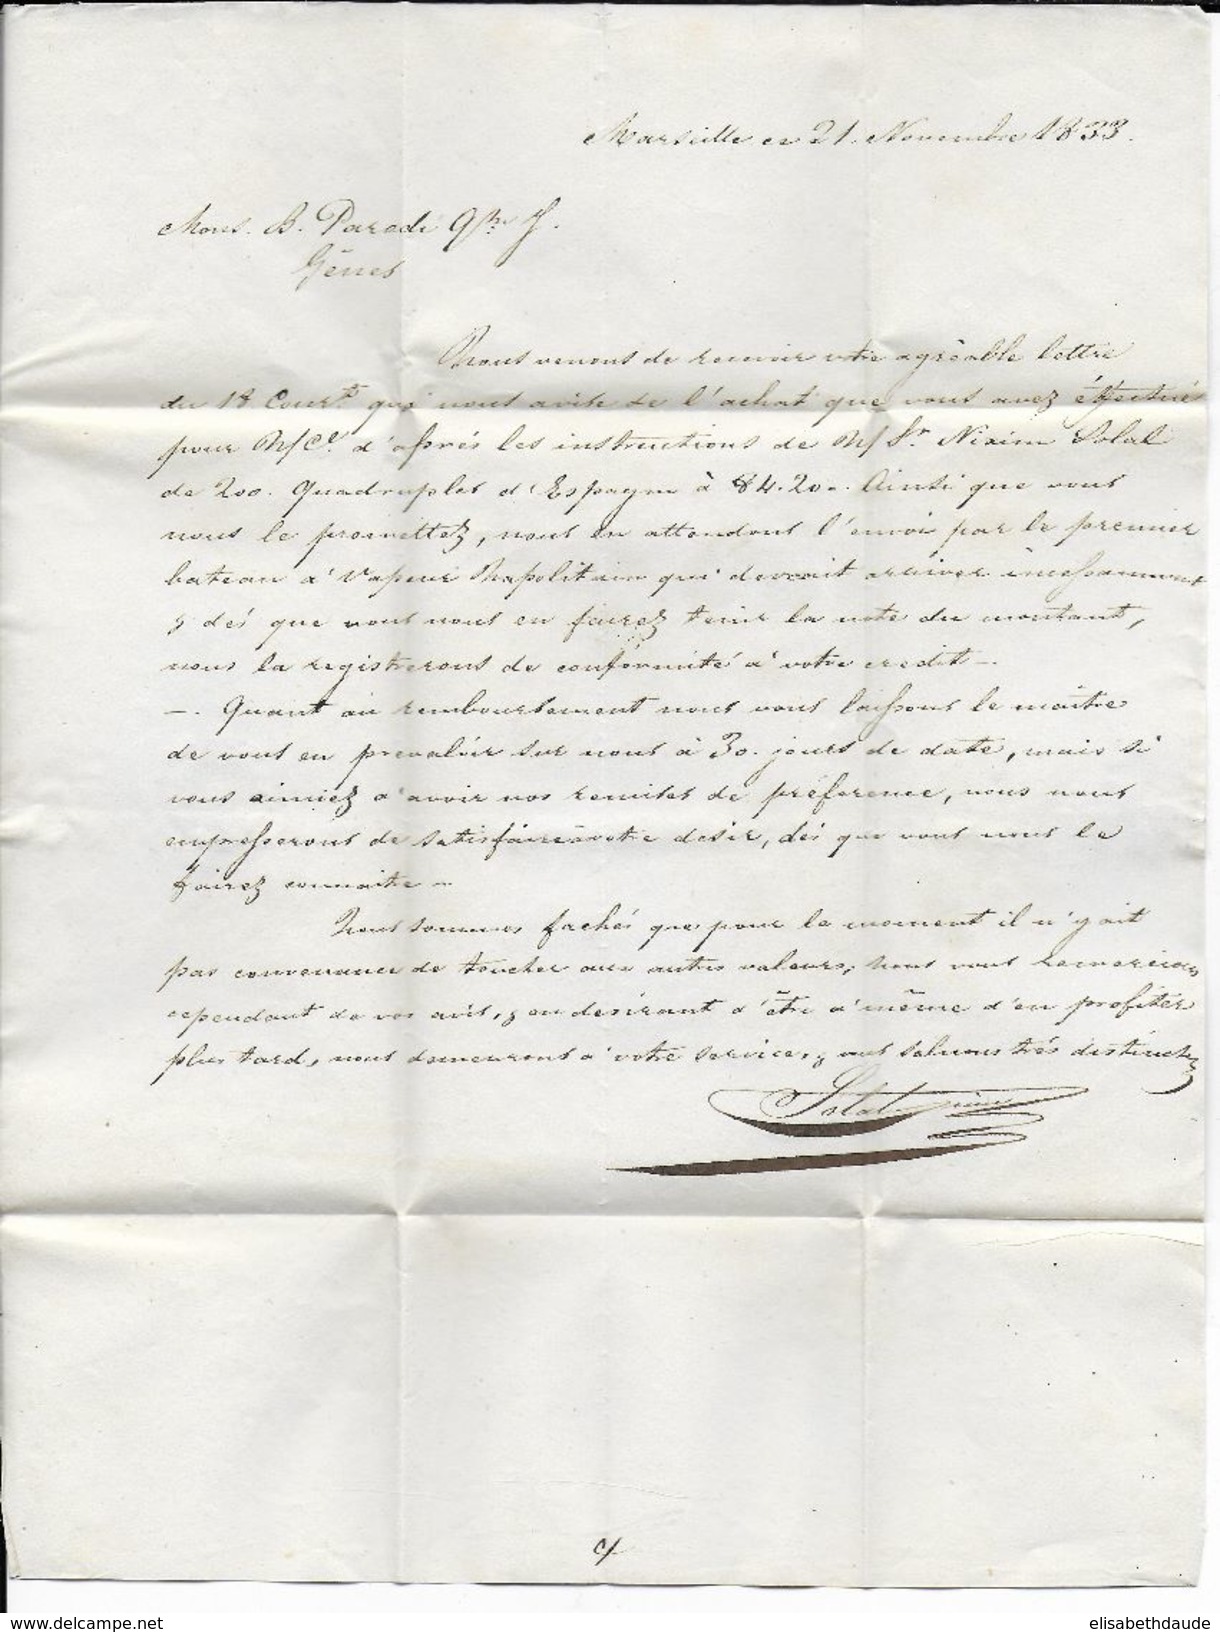 Marseille ce 21. Novembre 1833.
Mons. B. Parodi qm. J.
Gênes
Nous venons de recevoir votre agrèable lettre
du 18 Court. qui nous avise de l'achat que vous avez éffectués
pour N/Ce. d'aprés les instructions de N/Sr. Nissim Solal
de 200. Quadruples d'Espagne à 84.20.. Ainsi que vous
nous le promettez, nous en attendons l'envoi par le premier
bateau à Vapeur Napolitain qui devrait arriver incessamment
& dés que vous nous en fairez tenir la note du montant,
nous la registrerons de conformité à votre credit -.
-. Quant au remboursement nous vous laissons le maître
de vous en prevaloir sur nous à 30. jours de date, mais si
vous aimiez d'avoir nos remises de préference, nous nous
empresserons de satisfaire à votre desir, dés que vous nous le
fairez connaitre -
Nous sommes fachés que pour le moment il n'y ait
pas convenance de toucher aux autres valeurs, nous vous remercions
cependant de vos avis, & en desirant d'être à même d'en profiter
plus tard, nous demeurons à votre service, & vous saluons trés distinctez
Solal
delcampe.net
elisabethdaude